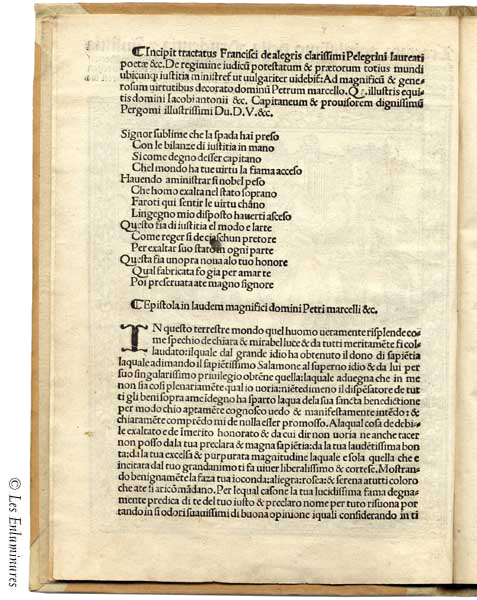 ¶Incipit tractatus Francisci de alegris clarissimi Pelegrini laureati
poetæ &c. De regimine iudicũ potestatum & prætorum totius mundi
ubicunq; iustitia ministret̃ ut uulgariter uidebit̃: Ad magnificũ & gene-
rosum uirtutibus decorato dominũ Petrum marcello. Q. illustris equi-
tis domini Iacobi antonii &c. Capitaneum & prouisorem dignissimũ
Pergomi illustrissimi Du. D. V. &c.
Signor sublime che la spada hai preso
Con le bilanze di iustitia in mano
Si come degno desser capitano
Chel mondo ha tue uirtu la fiama acceso
Hauendo aministrar si nobel peso
Che homo exalta nel stato soprano
Faroti qui sentir le uirtu chãno
Lingegno mio disposto hauerti asceso
Questo fia di iustitia el modo e larte
Come reger si de ciaschun pretore
Per exaltar suo stato in ogni parte
Questa fia unopra noua alo tuo honore
Qual fabricata fo gia per amar te
Poi preseruata ate magno signore
¶Epistola in laudem magnifici domini Petri marcelli &c.
IN questo terrestre mondo quel huomo ueramente risplende co-
me spechio de chiara & mirabel luce & da tutti meritamẽte fi col-
laudato: ilquale dal grande idio ha obtenuto il dono di sapiẽtia
laquale adimando il sapiẽtissimo Salamone al superno idio & da lui per
suo singularissimo priuilegio obtẽne quella: laquale aduegna che in me
non sia cosi plenariamẽte qual io uoria: niẽtedimeno il dispẽsatore de tut
ti gli beni sopra ame idegno ha sparto laqua dela sua sancta benedictione
per modo chio aptamẽte cognosco uedo & manifestamente intẽdo: &
chiaramẽte comprẽdo mi de nulla esser promosso. Ala qual cosa de debi-
le exaltato e de imerito honorato & da cui dir non uoria ne anche tacer
non posso dala tua preclara & magna sapiẽtia: da la tua laudẽtissima bon
ta: da la tua excelsa & purpurata magnitudine laquale e sola quella che e
incitara dal tuo grandanimo ti fa uiuer liberalissimo & cortese. Mostran-
do benignamẽte la faza tua ioconda: aliegra: rosea: & serena a tutti coloro
che ate si aricõmãdano. Per lequal casone la tua lucidissima fama degna-
mente predica di te del tuo iusto & preclaro nome per tuto risuona por
tando in si odori suauissimi di buona opinione iquali considerando in ti
© Les Enluminures